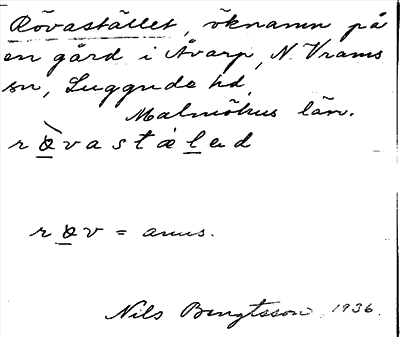 Rövastället, öknamn på
en gård i Åvarp, N. Vrams
sn, Luggude hd,
Malmöhus län.
rövastäled
röv = anus.
Nils Bengtsson 1936.